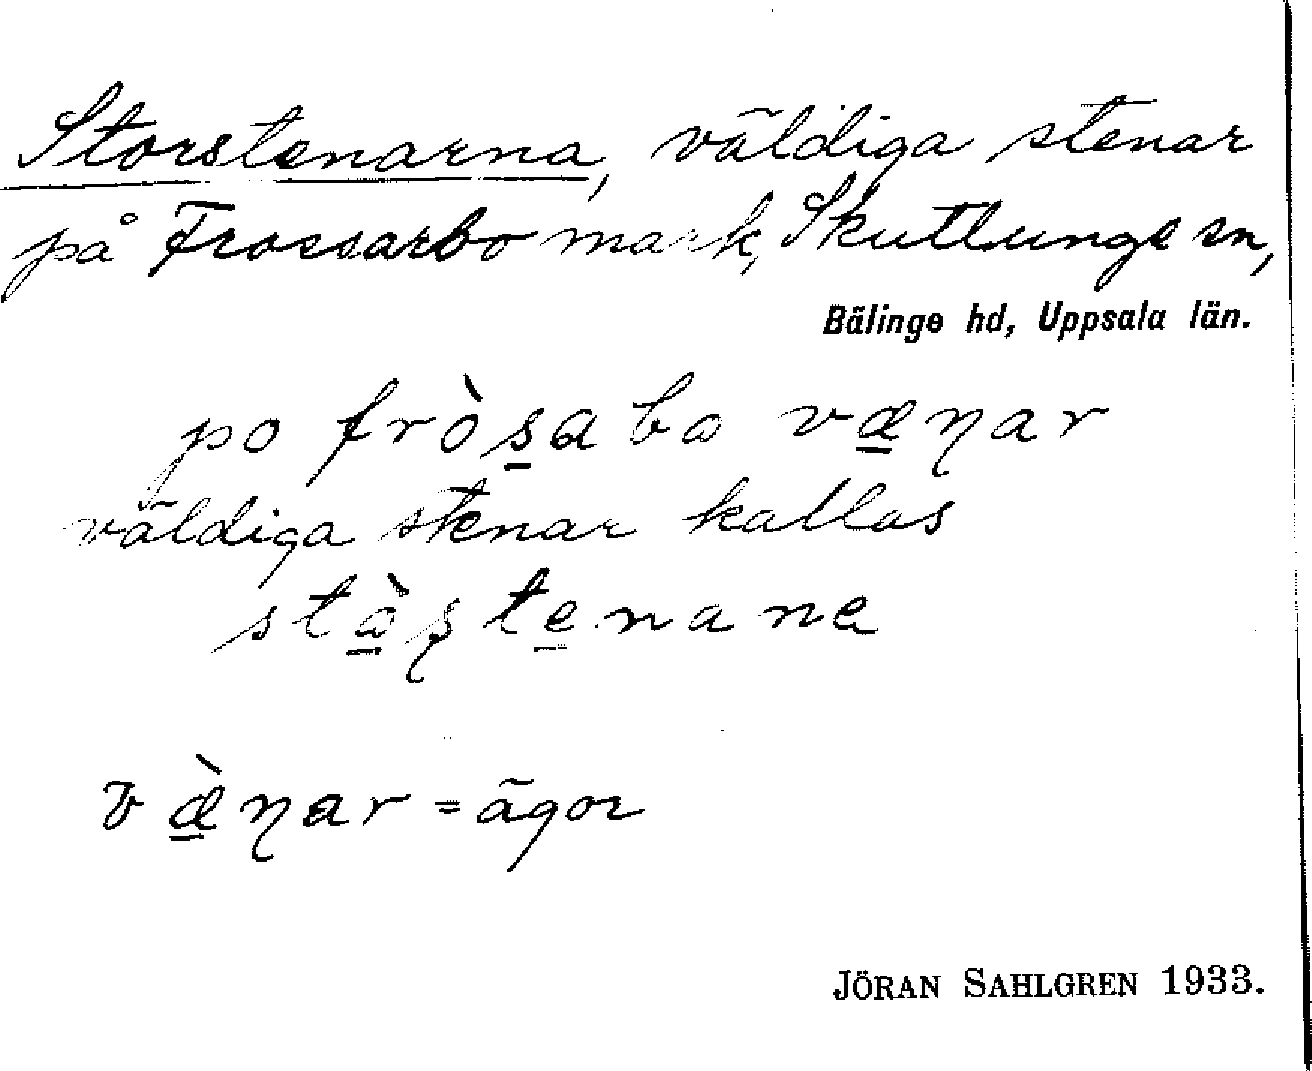 Storstenarna, väldiga stenar
på Frossarbo mark, Skuttunge sn,
Bälinge hd, Uppsala län.
po fròs̲abɷ væ̲ŋar
väldiga stenar kallas
stɷ̲̀ʂte̲nana
væ̲̀ŋar = ägor
JÖRAN SAHLGREN 1933.